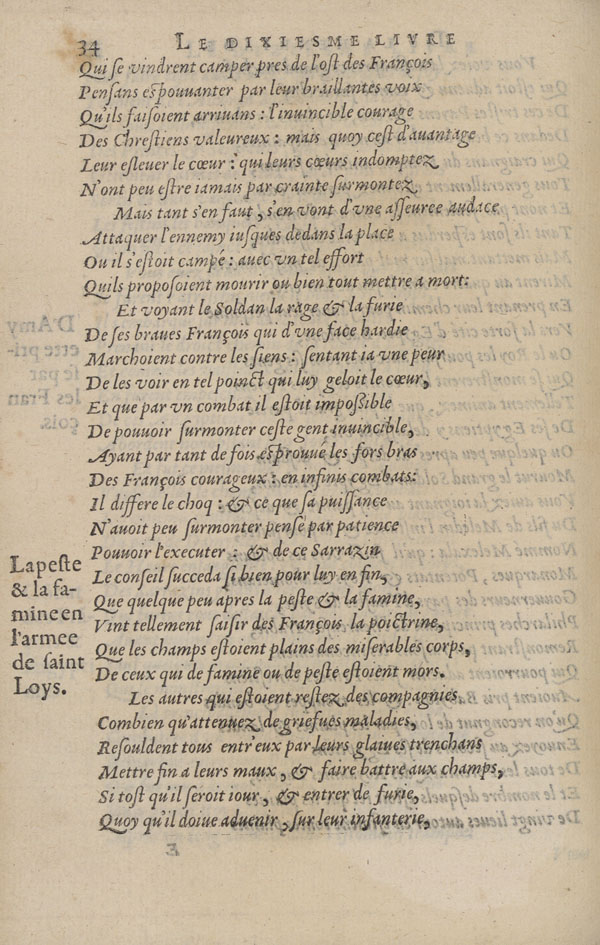 34 LE DIXIESME LIVRE
Qui se vindrent camper pres de l'ost des François
Pensans espouuanter par leur braillantes voix
Qu'ils faisoient arriuans : l'inuincible courage
Des Chrestiens valeureux : mais quoy cest d'auantage
Leur esleuer le cœur : qui leurs cœurs indomptez
N'ont peu estre iamais par crainte surmontez.
Mais tant s'en faut, s'en vont d'vne asseuree audace
Attaquer l'ennemy iusques dedans la place
Ou il s'estoit campé : auec vn tel effort
Quils proposoient mourir ou bien tout mettre a mort:
Et voyant le Soldan la rage & la furie
De ses braues François qui d'vne face hardie
Marchoient contre les siens : sentant ia vne peur
De les voir en tel poinct qui luy geloit le cœur,
Et que par vn combat il estoit impossible
De pouuoir surmonter ceste gent inuincible,
Ayant par tant de fois esprouué les fors bras
Des François courageux : en infinis combats:
Il differe le choq : & ce que sa puissance
N'auoit peu surmonter pense par patience
Pouuoir l'executer : & de ce Sarrazin
Le conseil succeda si bien pour luy en fin,
Que quelque peu apres la peste & la famine,
Vint tellement saisir des François la poictrine,
Que les champs estoient plains des miserables corps,
De ceux qui de famine ou de peste estoient mors.
Les autres qui estoient restez des compagnies,
Combien qu'attenuez de griefues maladies,
Resouldent tous entr'eux par leurs glaiues trenchans
Mettre fin a leurs maux, & faire battre aux champs,
Si tost qu'il seroit iour, & entrer de furie,
Quoy qu'il doiue aduenir, sur leur infanterie,
E
La peste
& la fa-
mine en
l'armee
de saint
Loys.